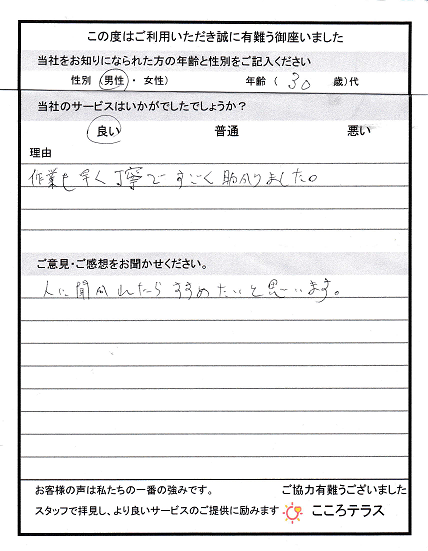 この度はご利用いただき誠に有難う御座いました
当社をお知りになられた方の年齢と性別をご記入ください
性別 (男性 ・ 女性) 年齢 ( 30 歳)代
当社のサービスはいかがでしたでしょうか?
良い 普通 悪い
理由
作業も早く丁寧ですごく助かりました。
ご意見・ご感想をお聞かせください。
人に聞かれたらすすめたいと思います。
お客様の声は私たちの一番の強みです。 ご協力有難うございました
スタッフで拝見し、より良いサービスのご提供に励みます こころテラス